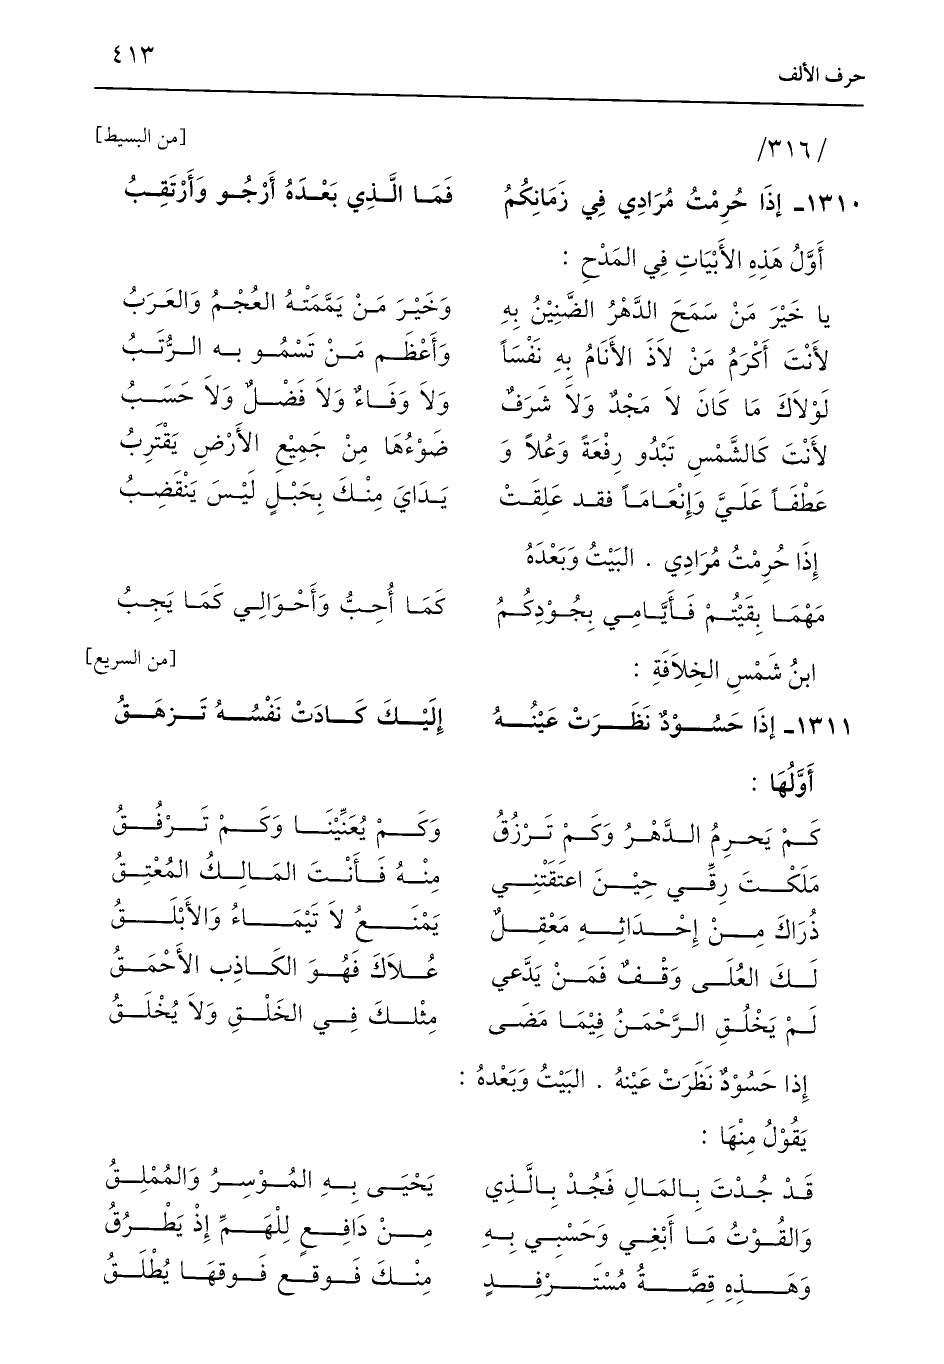 ٤١٣
حرف الألف
/٣١٦/ [من البسيط]
١٣١٠ـ إِذَا حُرِمْتُ مُرَادِي فِي زَمَانِكُمُ فَمَا الَّذِي بَعْدَهُ أَرْجُو وَأَرْتَقِبُ
أَوَّلُ هَذِهِ الأَبْيَاتِ فِي المَدْحِ :
يا خَيْرَ مَنْ سَمَحَ الدَّهْرُ الضَّنِيْنُ بِهِ وَخَيْرَ مَنْ يَمَّمَتْهُ العُجْمُ وَالعَرَبُ
لأَنْتَ أَكْرَمُ مَنْ لاَذَ الأَنَامُ بِهِ نَفْسَاً وَأَعْظَم مَنْ تَسْمُو به الرُّتَبُ
لَوْلاَكَ مَا كَانَ لاَ مَجْدٌ وَلاَ شَرَفٌ وَلاَ وَفَاءٌ وَلاَ فَضْلٌ وَلاَ حَسَبُ
لأَنْتَ كَالشَّمْسِ تَبْدُو رِفْعَةً وَعُلاً وَ ضَوْءُهَا مِنْ جَمِيْعِ الأَرْضِ يَقْتَرِبُ
عَطْفَاً عَلَيَّ وَإِنْعَامَاً فقد عَلِقَتْ يَدَايَ مِنْكَ بِحَبْلٍ لَيْسَ يَنْقَضِبُ
إِذَا حُرِمْتُ مُرَادِي . البَيْتُ وَبَعْدَهُ
مَهْمَا بِقَيْتُمْ فَأَيَّامِي بِجُوْدِكُمُ كَمَا أُحِبُّ وَأَحْوَالِي كَمَا يَجِبُ
ابنُ شَمْسِ الخِلاَفَةِ : [من السريع]
١٣١١ـ إِذَا حَسُوْدٌ نَظَرَتْ عَيْنُهُ إِلَيْكَ كَادَتْ نَفْسُهُ تَزهَقُ
أَوَّلُهَا :
كَمْ يَحرِمُ الدَّهْرُ وَكَمْ تَرْزُقُ وَكَمْ يُعَنِّيْنَا وَكَمْ تَرْفُقُ
مَلَكْتَ رِقِّي حِيْنَ اعتَقتَنِي مِنْهُ فَأَنْتَ المَالِكُ المُعْتِقُ
ذُرَاكَ مِنْ إِحْدَاثِهِ مَعْقِلٌ يَمْنَعُ لاَ تَيْمَاءُ وَالأَبْلَقُ
لَكَ العُلَى وَقْفٌ فَمَنْ يَدَّعي عُلاَكَ فَهُوَ الكَاذِب الأَحْمَقُ
لَمْ يَخْلُقِ الرَّحْمَنُ فِيْمَا مَضَى مِثْلكَ فِي الخَلْقِ وَلاَ يُخْلَقُ
إِذا حَسُوْدٌ نَظَرَتْ عَيْنهُ . البَيْتُ وَبَعْدهُ :
يَقُوْلُ مِنْهَا :
قَدْ جُدْتَ بِالمَالِ فَجُدْ بِالَّذِي يَحْيَى بِهِ المُوْسِرُ وَالمُمْلِقُ
وَالقُوْتُ مَا أَبْغِي وَحَسْبِي بِهِ مِنْ دَافِعٍ لِلْهَمِّ إِذْ يَطْرُقُ
وَهَذِهِ قِصَّةُ مُسْتَرْفِدٍ مِنْكَ فَوقع فَوقهَا يُطْلَقُ